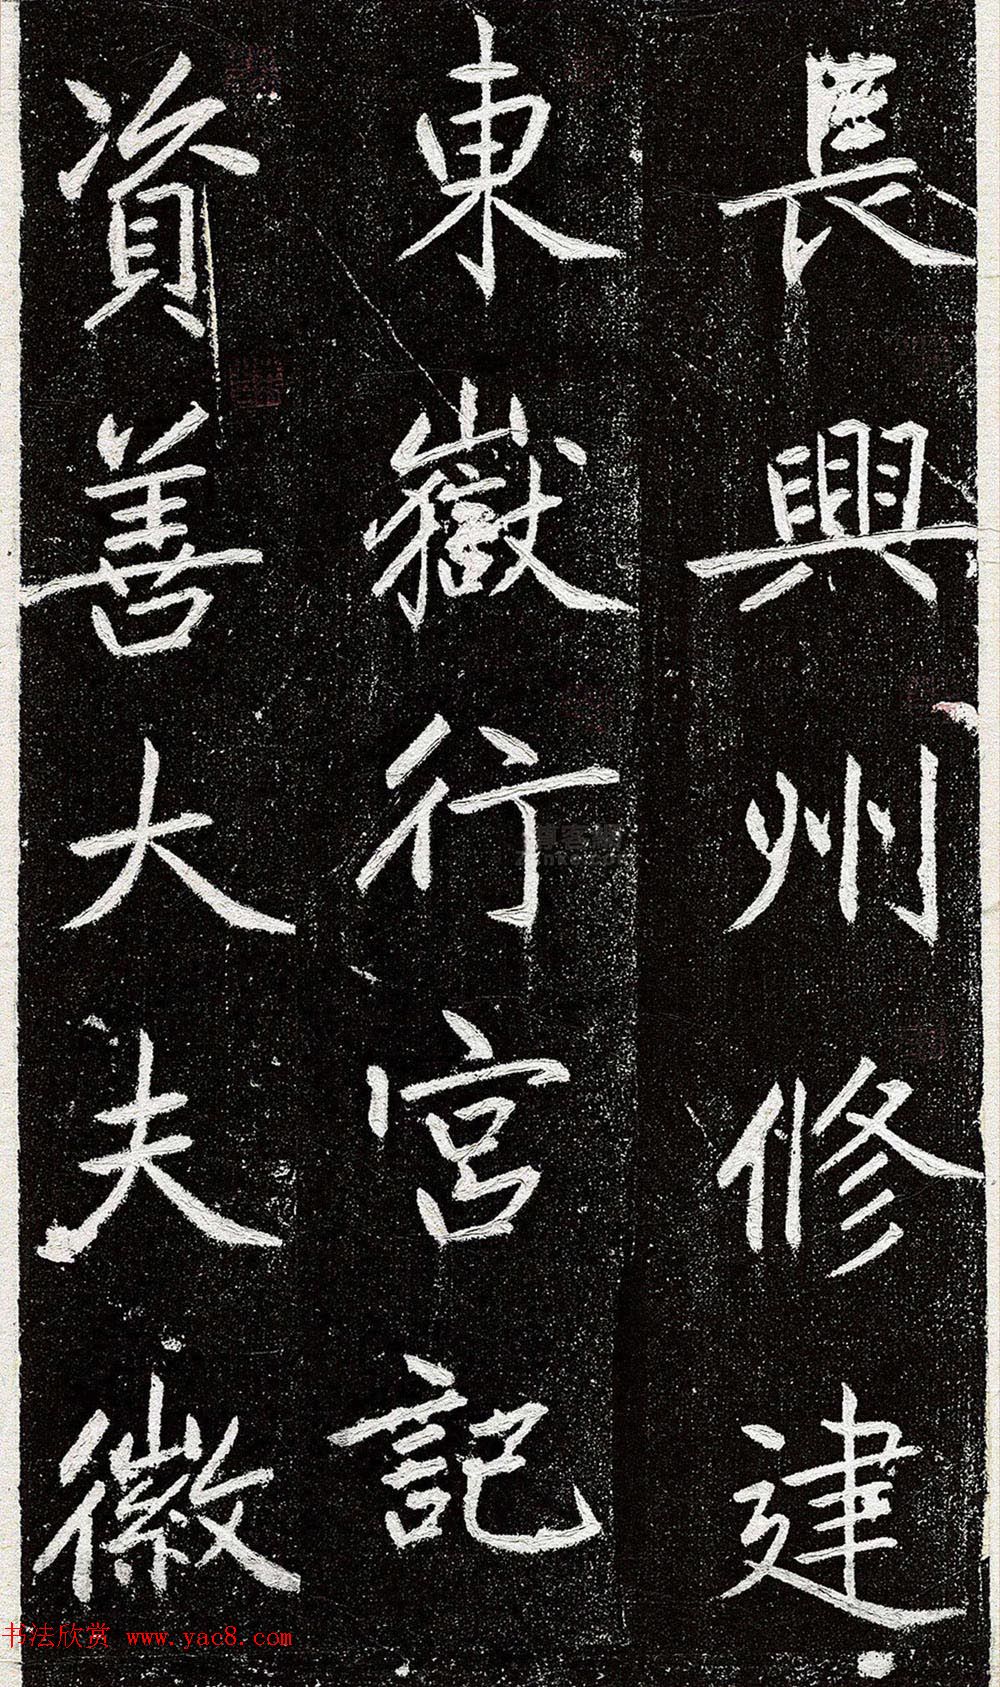 長興州修建
東嶽行宮記
資善大夫徽
书法欣赏 www.yac8.com